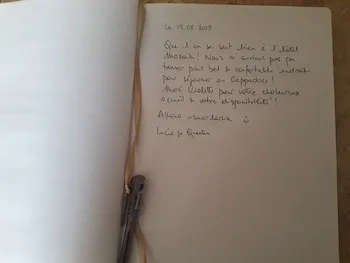 Le 15.08 2019
Que l'on se sent bien à l'hôtel
! Nous n'aurions pas pu
trouver plus bel & confortable endroit
pour séjourner en Cappadoce !
Merci Violette pour votre chaleureux
accueil & votre disponibilité !
Allaha ısmarladık
Lucie & Quentin